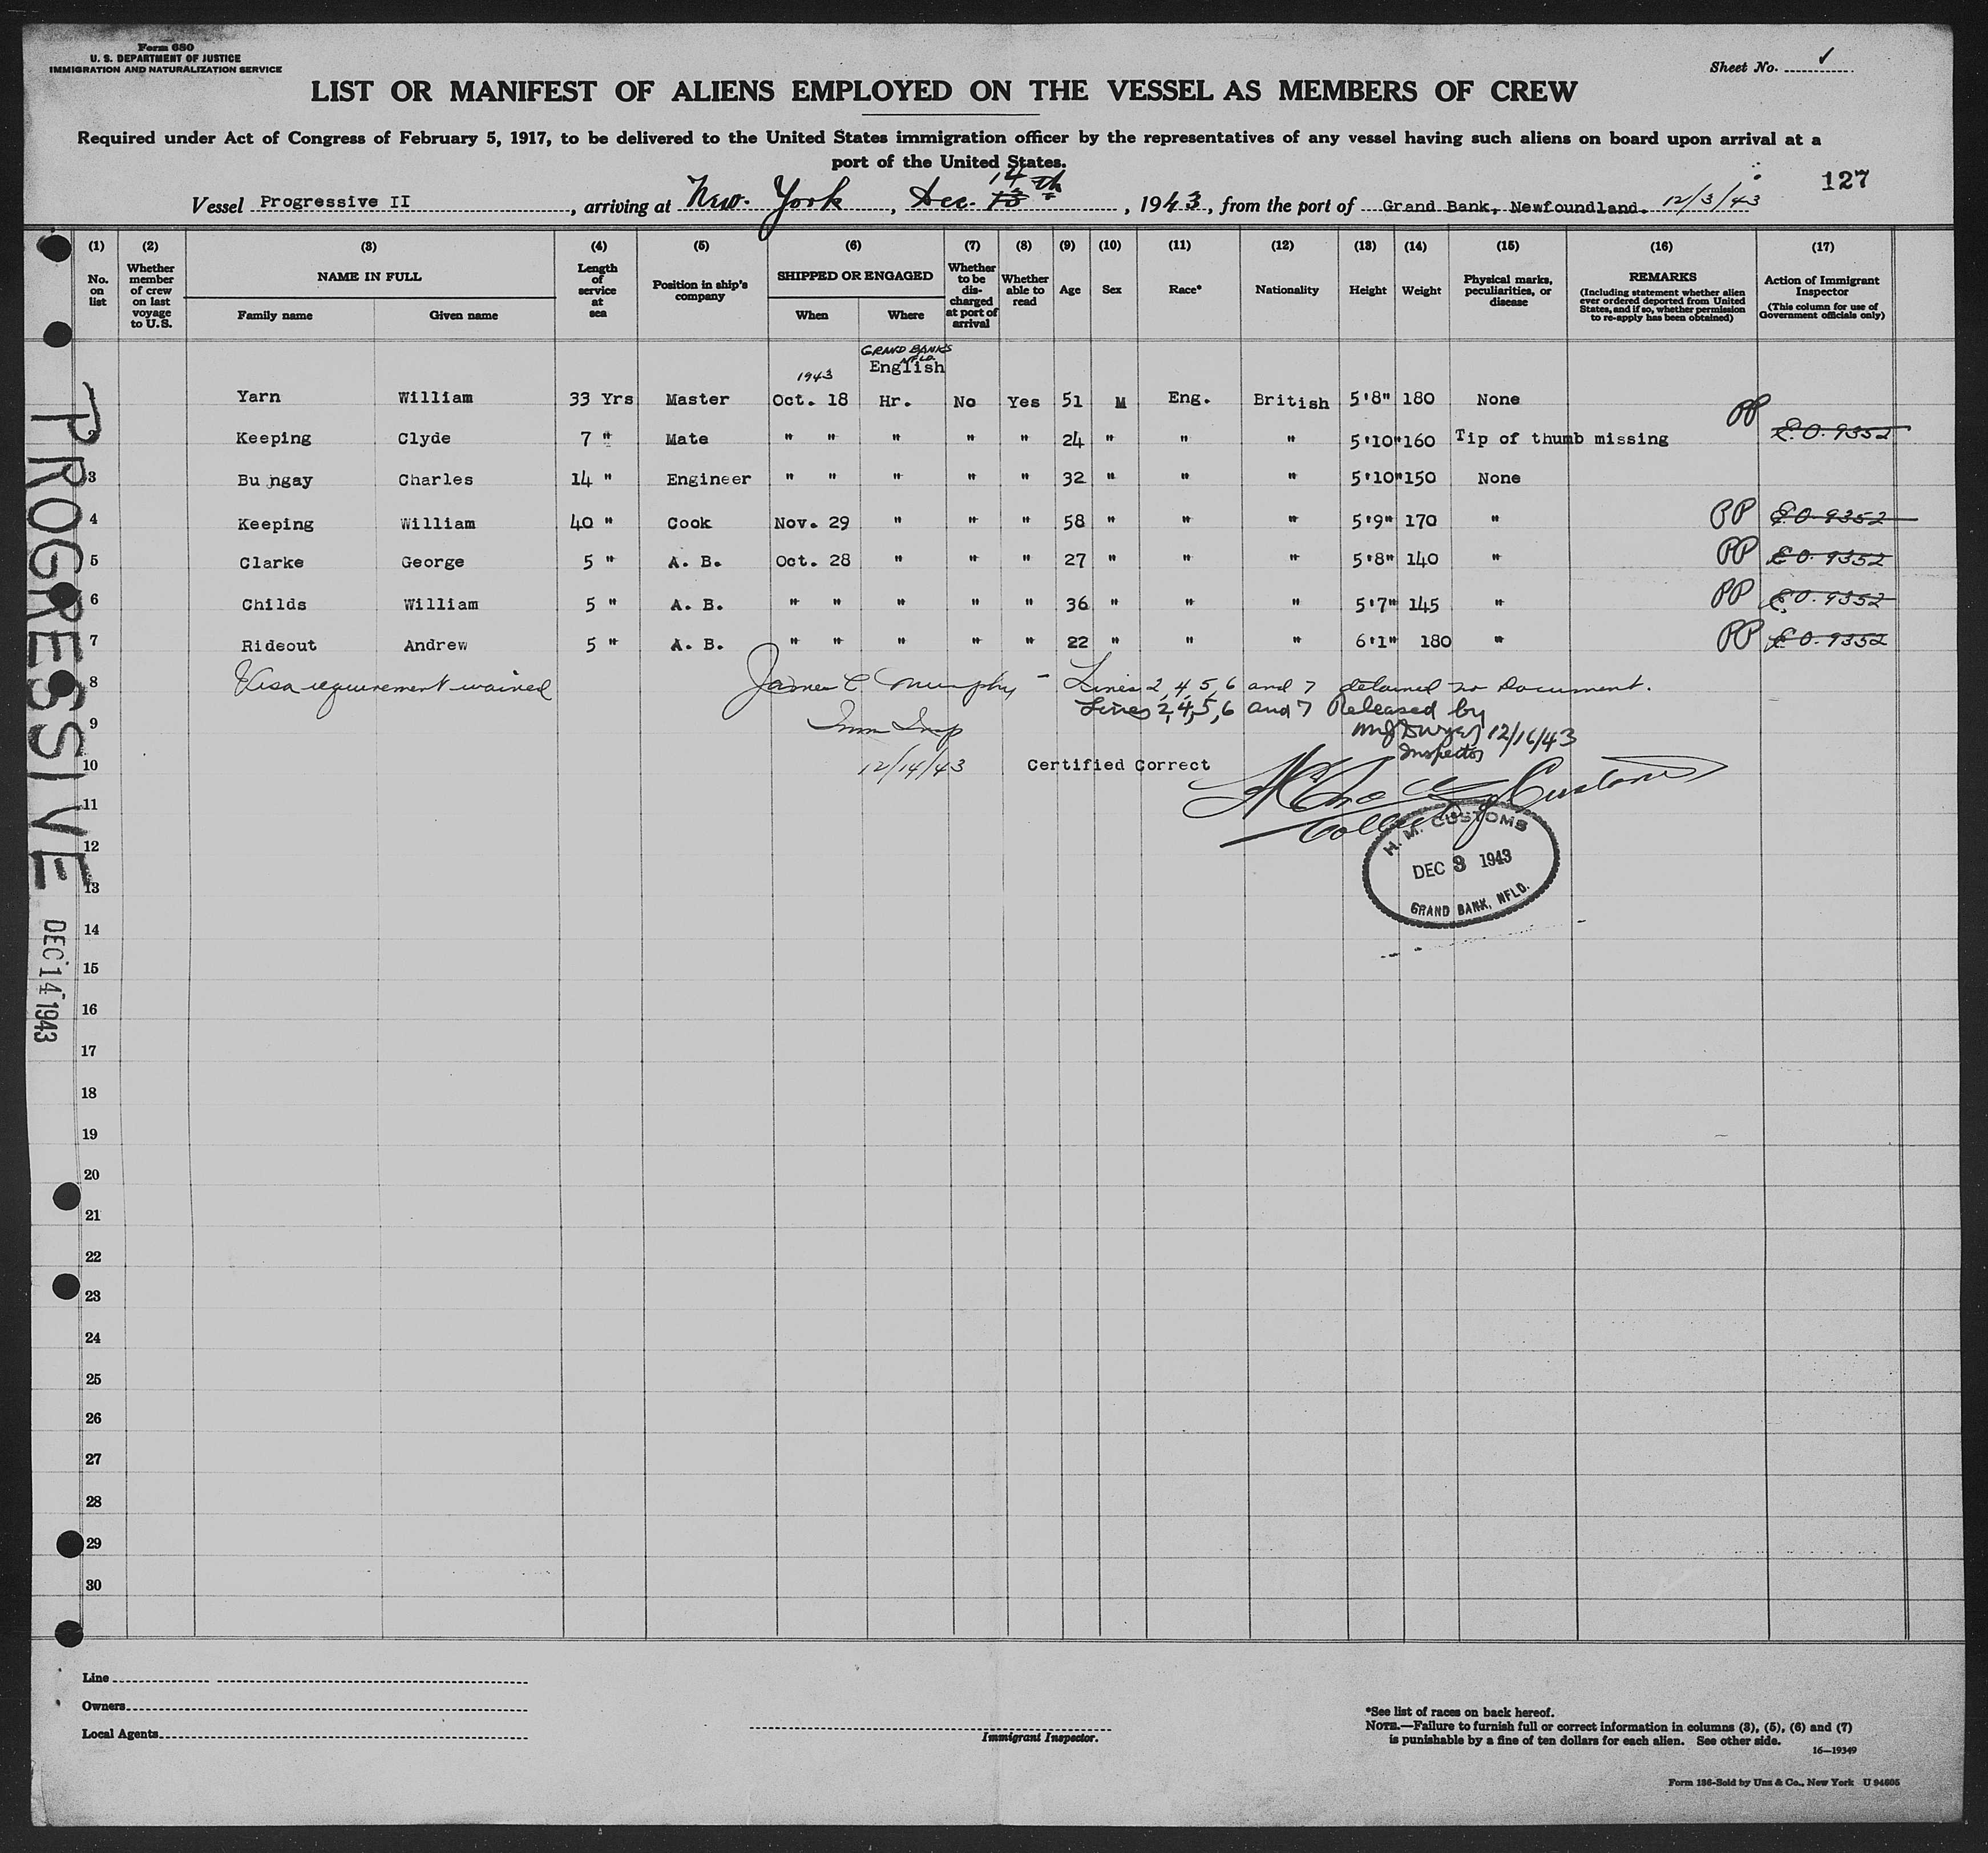 Form 680
U. S. DEPARTMENT OF JUSTICE
IMMIGRATION AND NATURALIZATION SERVICE
Sheet No. 1
LIST OR MANIFEST OF ALIENS EMPLOYED ON THE VESSEL AS MEMBERS OF CREW
Required under Act of Congress of February 5, 1917, to be delivered to the United States immigration officer by the representatives of any vessel having such aliens on board upon arrival at a
port of the United States.
127
Vessel Progressive II, arriving at New York, Dec. 13 14th, 1943, from the port of Grand Bank, Newfoundland. 12/3/43
(1) (2) (3) (4) (5) (6) (7) (8) (9) (10) (11) (12) (13) (14) (15) (16) (17)
No. on list
Whether member of crew on last voyage to U.S.
NAME IN FULL
Family name Given name
Length of service at sea
Position in ship's company
SHIPPED OR ENGAGED
When Where
Whether to be discharged at port of arrival
Whether able to read
Age
Sex
Race*
Nationality
Height
Weight
Physical marks, peculiarities, or disease
REMARKS
(Including statement whether alien ever ordered deported from United States, and if so, whether permission to re-apply has been obtained)
Action of Immigrant Inspector
(This column for use of Government officials only)
GRAND BANKS NFLD.
1943 English
Yarn William 33 Yrs Master Oct. 18 Hr. No Yes 51 M Eng. British 5'8" 180 None
2 Keeping Clyde 7 " Mate " " " " " 24 " " " 5'10" 160 Tip of thumb missing PP E.O. 9352
3 Bungay Charles 14 " Engineer " " " " " 32 " " " 5'10" 150 None
4 Keeping William 40 " Cook Nov. 29 " " " 58 " " " 5'9" 170 " PP E.O. 9352
5 Clarke George 5 " A. B. Oct. 28 " " " 27 " " " 5'8" 140 " PP E.O. 9352
6 Childs William 5 " A. B. " " " " " 36 " " " 5'7" 145 " PP E.O. 9352
7 Rideout Andrew 5 " A. B. " " " " " 22 " " " 6'1" 180 " PP E.O. 9352
8 Visa requirement waived James C Murphy - Lines 2, 4, 5, 6 and 7 detained no Document.
Lines 2, 4, 5, 6 and 7 Released by
9 Imm Insp Dwyer 12/16/43
Inspector
10 12/14/43 Certified Correct
Customs
11
H. M. CUSTOMS
DEC 3 1943
GRAND BANK, NFLD.
12
13
14
15
16
17
18
19
20
21
22
23
24
25
26
27
28
29
30
PROGRESSIVE
DEC 14 1943
Line
Owners
Local Agents
Immigrant Inspector.
*See list of races on back hereof.
NOTE.—Failure to furnish full or correct information in columns (3), (5), (6) and (7)
is punishable by a fine of ten dollars for each alien. See other side.
16—19349
Form 136-Sold by Unz & Co., New York U 94605